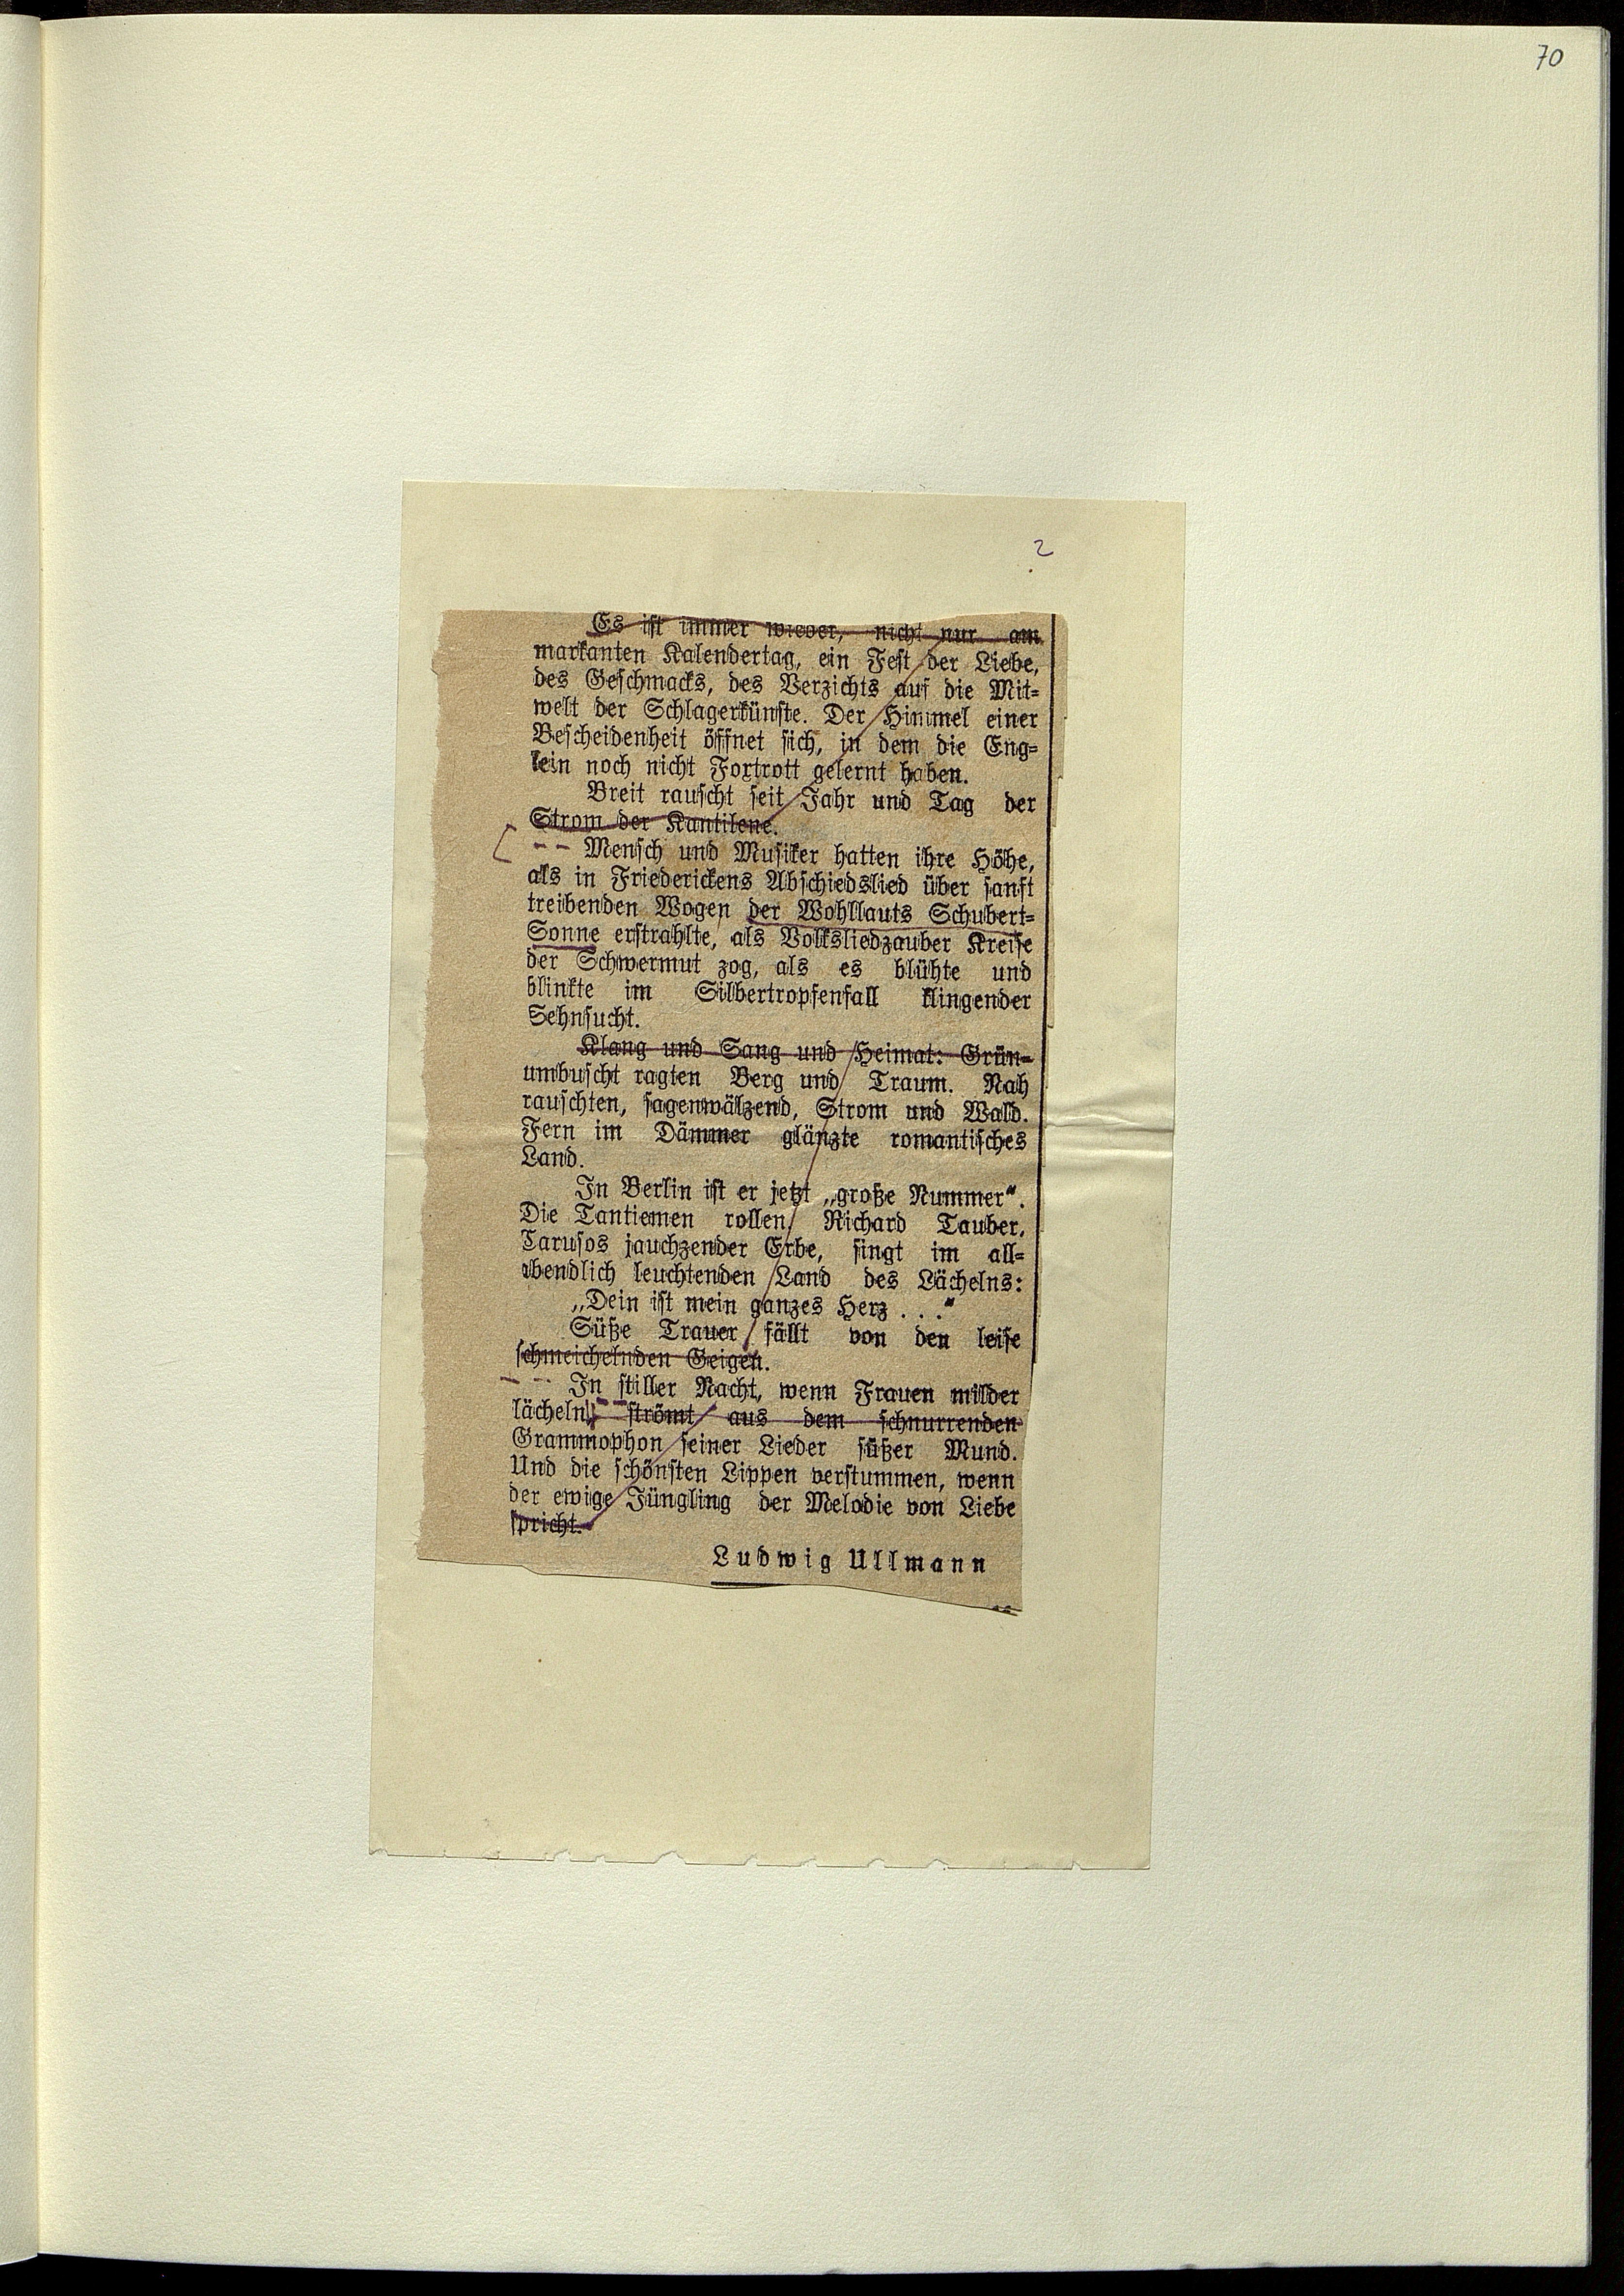 70
2
Es ist immer wieder, nicht nur am
markanten Kalendertag, ein Fest der Liebe,
des Geschmacks, des Verzichts auf die Mit-
welt der Schlagerkünste. Der Himmel einer
Bescheidenheit öffnet sich, in dem die Eng-
lein noch nicht Foxtrott gelernt haben.
Breit rauscht seit Jahr und Tag der
Strom der Kantilene.
-- Mensch und Musiker hatten ihre Höhe,
als in Friederickens Abschiedslied über sanft
treibenden Wogen der Wohllauts Schubert-
Sonne erstrahlte, als Volksliedzauber Kreise
der Schwermut zog, als es blühte und
blinkte im Silbertropfenfall klingender
Sehnsucht.
Klang und Sang und Heimat: Grün-
umbuscht ragten Berg und Traum. Nah
rauschten, sagenwälzend, Strom und Wald.
Fern im Dämmer glänzte romantisches
Land.
In Berlin ist er jetzt „große Nummer“.
Die Tantiemen rollen. Richard Tauber,
Carusos jauchzender Erbe, singt im all-
abendlich leuchtenden Land des Lächelns:
„Dein ist mein ganzes Herz . . .“
Süße Trauer fällt von den leise
schmeichelnden Geigen.
-- In stiller Nacht, wenn Frauen milder
lächeln, strömt aus dem schnurrenden
Grammophon seiner Lieder süßer Mund.
Und die schönsten Lippen verstummen, wenn
der ewige Jüngling der Melodie von Liebe
spricht.
Ludwig Ullmann